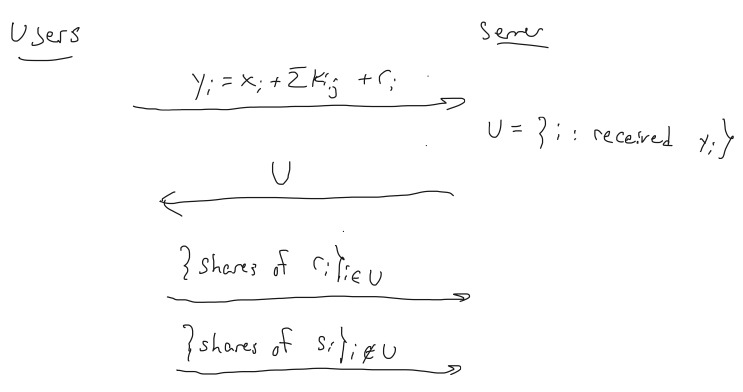 Users
Server
yᵢ = xᵢ + ΣKᵢⱼ + rᵢ
U = {i : received yᵢ}
U
{shares of rᵢ}ᵢ∈U
{shares of sᵢ}ᵢ∉U